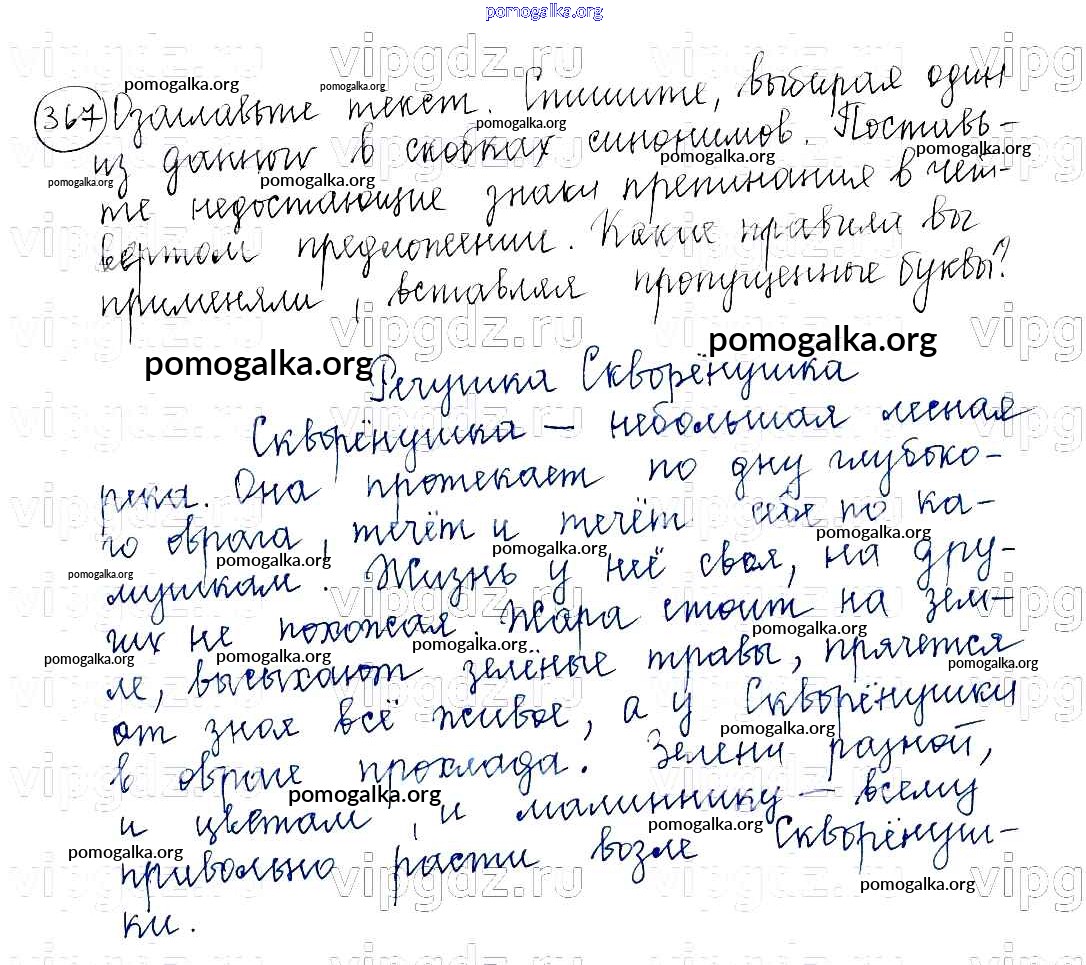 pomogalka.org
367 Озаглавьте текст. Спишите, выбирая один
из данных в скобках синонимов. Поставь-
те недостающие знаки препинания в чет-
вертом предложении. Какие правила вы
применяли, вставляя пропущенные буквы?
Речушка Скворёнушка
Скворёнушка — небольшая лесная
река. Она протекает по дну глубоко-
го оврага, течёт и течёт себе по ка-
мушкам. Жизнь у неё своя, на дру-
гих не похожая. Жара стоит на зем-
ле, высыхают зелёные травы, прячется
от зноя всё живое, а у Скворёнушки
в овраге прохлада. Зелени разной,
и цветам, и малиннику — всему
привольно расти возле Скворёнуш-
ки.